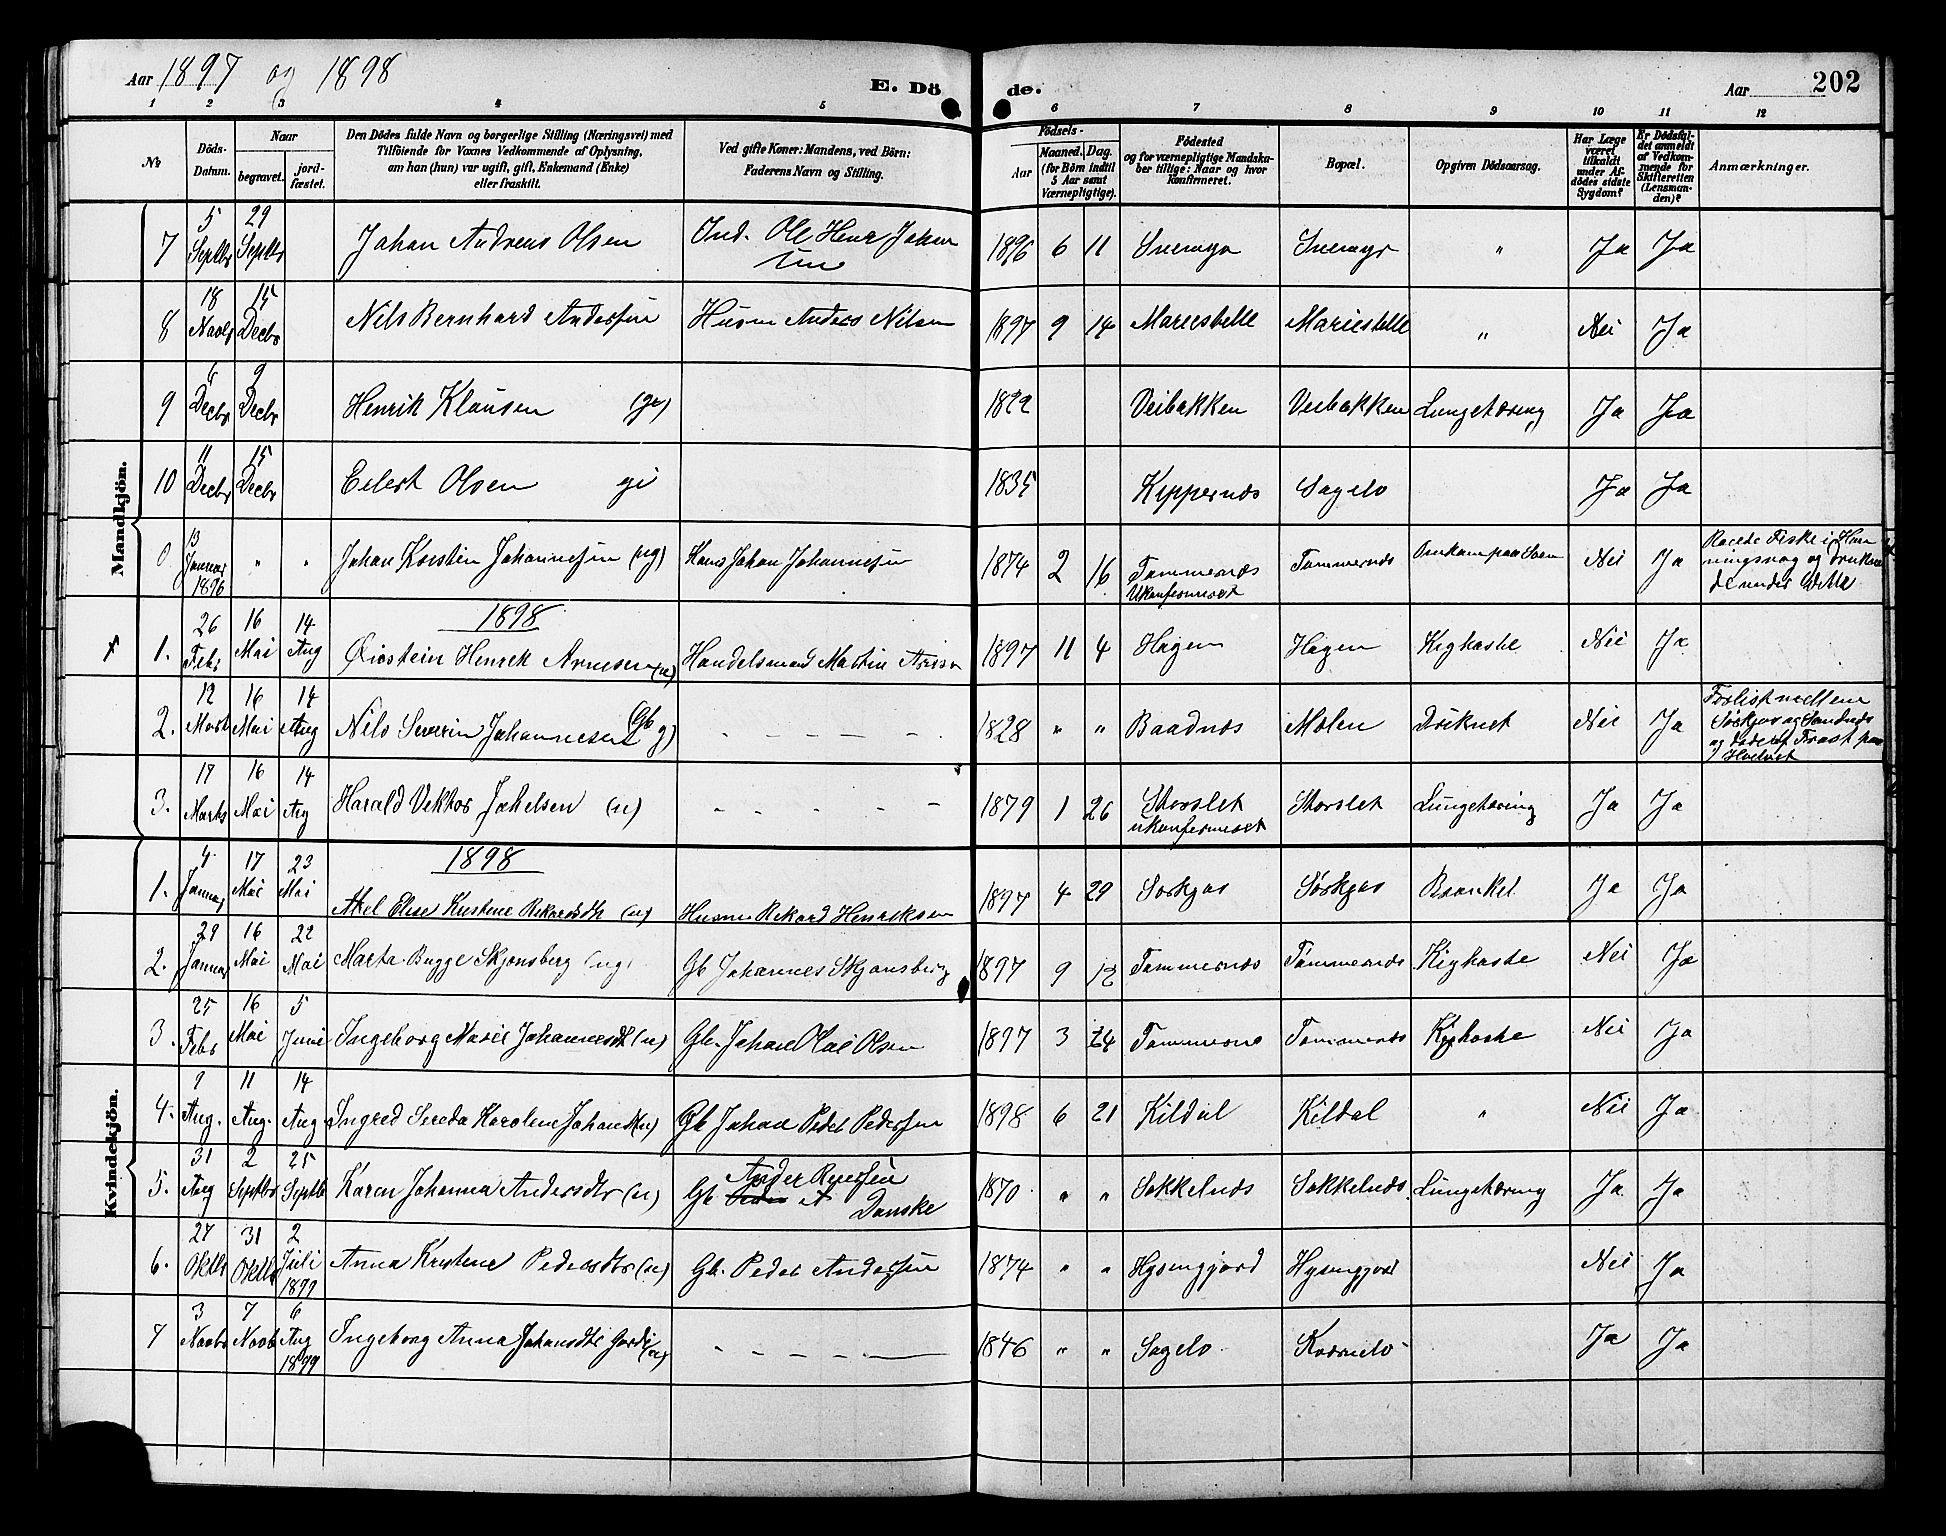 Aar 1897 og 1898
E. Dö de.
Aar 202
1 2 3 4 5 6 7 8 9 10 11 12
No
Döds-Datum.
Naar begravet. jordfæstet.
Den Dödes fulde Navn og borgerlige Stilling (Næringsvei) med Tilföiende for Voxnes Vedkommende af Oplysning, om han (hun) var ugift, gift, Enkemand (Enke) eller fraskilt.
Ved gifte Koner: Mandens, ved Börn: Faderens Navn og Stilling.
Födsels-
Aar
Maaned. Dag.
(for Börn indtil 5 Aar samt Værnepligtige).
Födested og for værnepligtige Mandskaber tillige: Naar og hvor konfirmeret.
Bopæl.
Opgiven Dödsaarsag.
Har Læge været tilkaldt under Afdödes sidste Sygdom?
Er Dödsfaldet anmeldt af Vedkommende for Skifteretten (Lensmanden)?
Anmærkninger.
Mandkjön.
7 5 Septbr 29 Septbr Johan Andreas Olsen Ind. Ole Henr Johan 1896 6 11 " Ja Ja
8 18 Novbr 15 Decbr Nils Bernhard Andersen Husm Anders Nilsen 1897 9 14 Mariesbelle Mariesbelle " Nei Ja
9 6 Decbr 9 Decbr Henrik Klausen (g) 1822 Veibakken Veibakken Lungetæring Ja Ja
10 11 Decbr 15 Decbr Eilert Olsen gi 1835 Kippernæs Sagelv Ja Ja
0 13 Januar 1896 " " Johan Korstin Johannesen (ug) Hans Johan Johannesen 1874 2 16 Tømmernæs Ukonfirmeret Tømmernæs Omkom paa Søen Nei Ja
1898
1. 26 Febr 16 Mai 14 Aug Øivstein Henrik Arnesen (u) Handelsmand Martin 1897 11 4 Hagen Hagen Kighoste Nei Ja
2. 12 Marts 16 Mai 14 Aug Nils Severin Johannesen (Gb g) 1828 " " Baadnæs Molen Druknet Nei Ja
og Frost paa Hvelvet
3. 17 Marts 16 Mai 14 Aug Harald Vektor Jakelsen (u) 1879 1 26 Storslet ukonfirmeret Storslet Lungetæring Ja Ja
Kvindekjön.
1898
1. 4 Januar 17 Mai 23 Mai Elise Kristine (u) Husm. Rikard Henriksen 1897 4 29 Sørkjos Sørkjos Ja Ja
2. 29 Januar 16 Mai 22 Mai Marta Bugge Skjønsberg (ug) Gb Johannes Skjønsberg 1897 9 12 Tømmernæs Tømmernæs Kighoste Nei Ja
3. 25 Febr 16 Mai 5 Juni Ingeborg Marie Johannesdt (u) Gb. Johan Olai Olsen 1897 3 24 Tømmernæs Tømmernæs Kighoste Nei Ja
4. 9 Aug. 11 Aug. 14 Aug Ingred Sereda Karoline Johansd (u) Gb Johan Peder Pedersen 1898 6 21 Kildal Kildal " Nei Ja
5. 31 Aug 2 Septbr 25 Septb Karen Johanna Andersdtr (u) Gb. Danske 1870 " " Sokkelnæs Sokkelnæs Lungetæring Ja Ja
6. 27 Oktbr 31 Oktbr 2 Juli 1899 Anna Kristine Pedersdtr (u) Gb. Peder Andersen 1874 " " Hysingjord Hysingjord Nei Ja
7 3 Novbr 7 Novb 6 Aug 1899 Ingeborg Anna Johansdtr (u) 1846 " " Sagelv Kvænelv Ja Ja